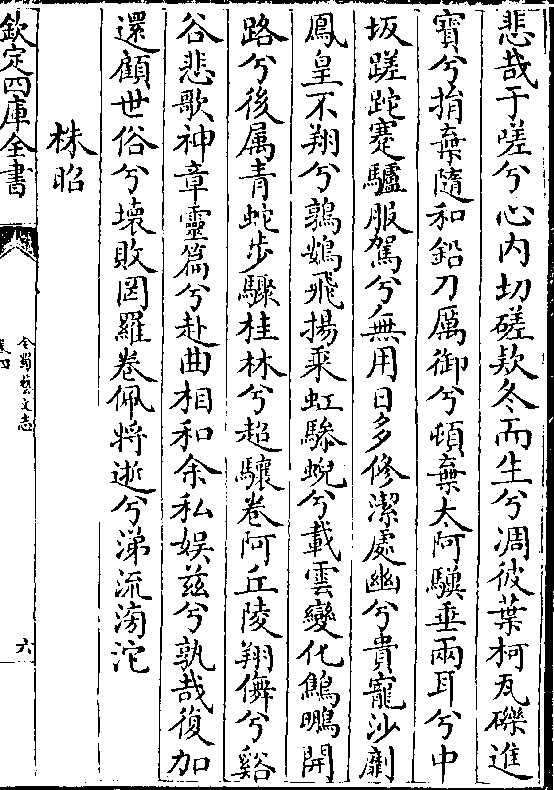 悲哉于嗟兮心内切磋款冬而生兮凋彼葉柯瓦礫進
寳兮捐棄隨和鉛刀厲御兮頓棄太阿驥垂兩耳兮中
坂蹉跎蹇驢服駕兮無用日多修潔處幽兮貴寵沙劘
鳳皇不翔兮鶉鴳飛揚乘虹驂蜺兮載雲變化鷦鵬開
路兮後属青蛇步驟桂林兮超驤卷阿丘陵翔儛兮谿
谷悲歌神章靈篇兮赴曲相和余私娯兹兮孰哉復加
還顧世俗兮壞敗罔羅卷佩將逝兮涕流滂沱
株昭
欽定四庫全書
全蜀藝文志
卷四
六